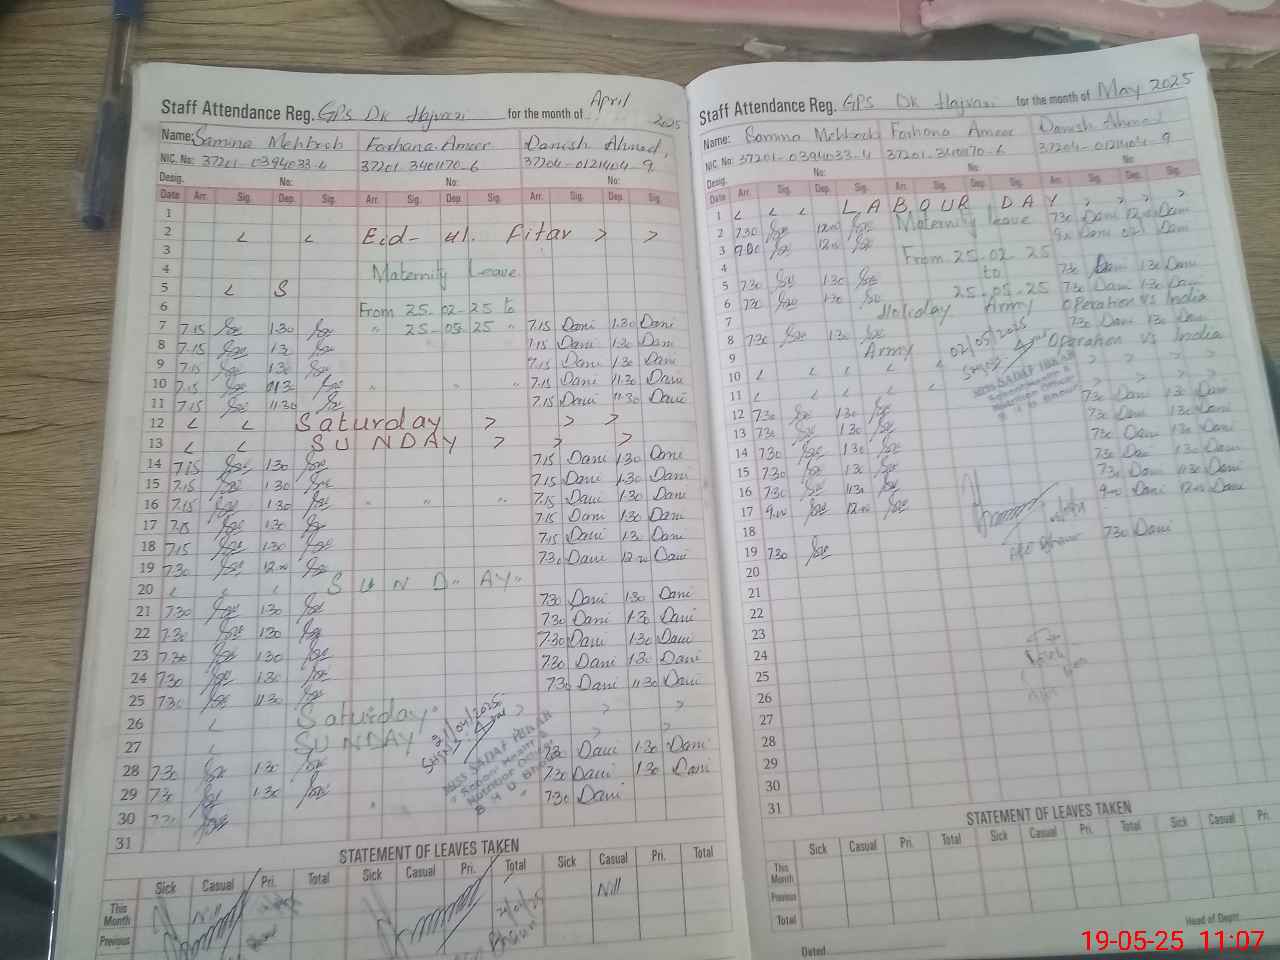 Staff Attendance Reg. GPS DK Hajvari for the month of April 2025
Name: Samina Mehboob Farhana Ameer Danish Ahmed,
NIC. No: 37201-0394033-4 37201 3401170-6 37204-0121404-9
Desig. No: No: No:
Date Arr. Sig. Dep. Sig. Arr. Sig. Dep. Sig. Arr. Sig. Dep. Sig.
1
2 Eid-ul. Fitar
3
4 Maternity Leave
5 S
6 From 25.02-25 to
7 7.15 1.30 " 25-05.25 " 7.15 Dani 1.30 Dani
8 7.15 1.30 7.15 Dani 1.30 Dani
9 7.15 1.30 7.15 Dani 1.30 Dani
10 7.15 7.15 Dani 11.30 Dani
11 7.15 11.30 7.15 Dani 11.30 Dani
12 Saturday
13 SUNDAY
14 7.15 1.30 7.15 Dani 1.30 Dani
15 7.15 1.30 7.15 Dani 1.30 Dani
16 7.15 1.30 7.15 Dani 1.30 Dani
17 7.15 1.30 7.15 Dani 1.30 Dani
18 7.15 1.30 7.15 Dani 1.30 Dani
19 7.30 12.00 7.30 Dani 12.00 Dani
20 SUNDAY
21 7.30 1.30 7.30 Dani 1.30 Dani
22 7.30 1.30 7.30 Dani 1.30 Dani
23 7.30 1.30 7.30 Dani 1.30 Dani
24 7.30 1.30 7.30 Dani 1.30 Dani
25 7.30 11.30 7.30 Dani 11.30 Dani
26 Saturday
27 SUNDAY
28 7.30 1.30 7.30 Dani 1.30 Dani
29 7.30 1.30 7.30 Dani 1.30 Dani
30 7.30 7.30 Dani
31
MISS SADAF
School Health &
Nutrition Officer
STATEMENT OF LEAVES TAKEN
Sick Casual Pri. Total Sick Casual Pri. Total Sick Casual Pri. Total
This Month Nill Nill
Previous
Staff Attendance Reg. GPS DK Hajvari for the month of May 2025
Name: Samina Mehboob Farhana Ameer Danish Ahmed
NIC. No: 37201-0394033-4 37201-3401170-6 37204-0121404-9
Desig. No: No: No:
Date Arr. Sig. Dep. Sig. Arr. Sig. Dep. Sig. Arr. Sig. Dep. Sig.
1 LABOUR DAY
2 7.30 12.00 Maternity leave 7.30 Dani 12.00 Dani
3 9.00 12.00 Dani Dani
4 From 25.02.25
5 7.30 1.30 to 7.30 Dani 1.30 Dani
6 7.30 1.30 25-05-25 7.30 Dani 1.30 Dani
7 Holiday Army Operation vs India
8 7.30 1.30 7.30 Dani 1.30 Dani
9 Army Operation vs India
10
11
12 7.30 1.30 7.30 Dani 1.30 Dani
13 7.30 1.30 7.30 Dani 1.30 Dani
14 7.30 1.30 7.30 Dani 1.30 Dani
15 7.30 1.30 7.30 Dani 1.30 Dani
16 7.30 11.30 7.30 Dani 11.30 Dani
17 9.00 12.00 9.00 Dani 12.00 Dani
18
19 7.30 7.30 Dani
20
21
22
23
24
25
26
27
28
29
30
31
02/05/2025
MISS SADAF
School Health &
Nutrition Officer
STATEMENT OF LEAVES TAKEN
Sick Casual Pri. Total Sick Casual Pri. Total Sick Casual Pri.
This Month
Previous
Total
Dated Head of Deptt
19-05-25 11:07